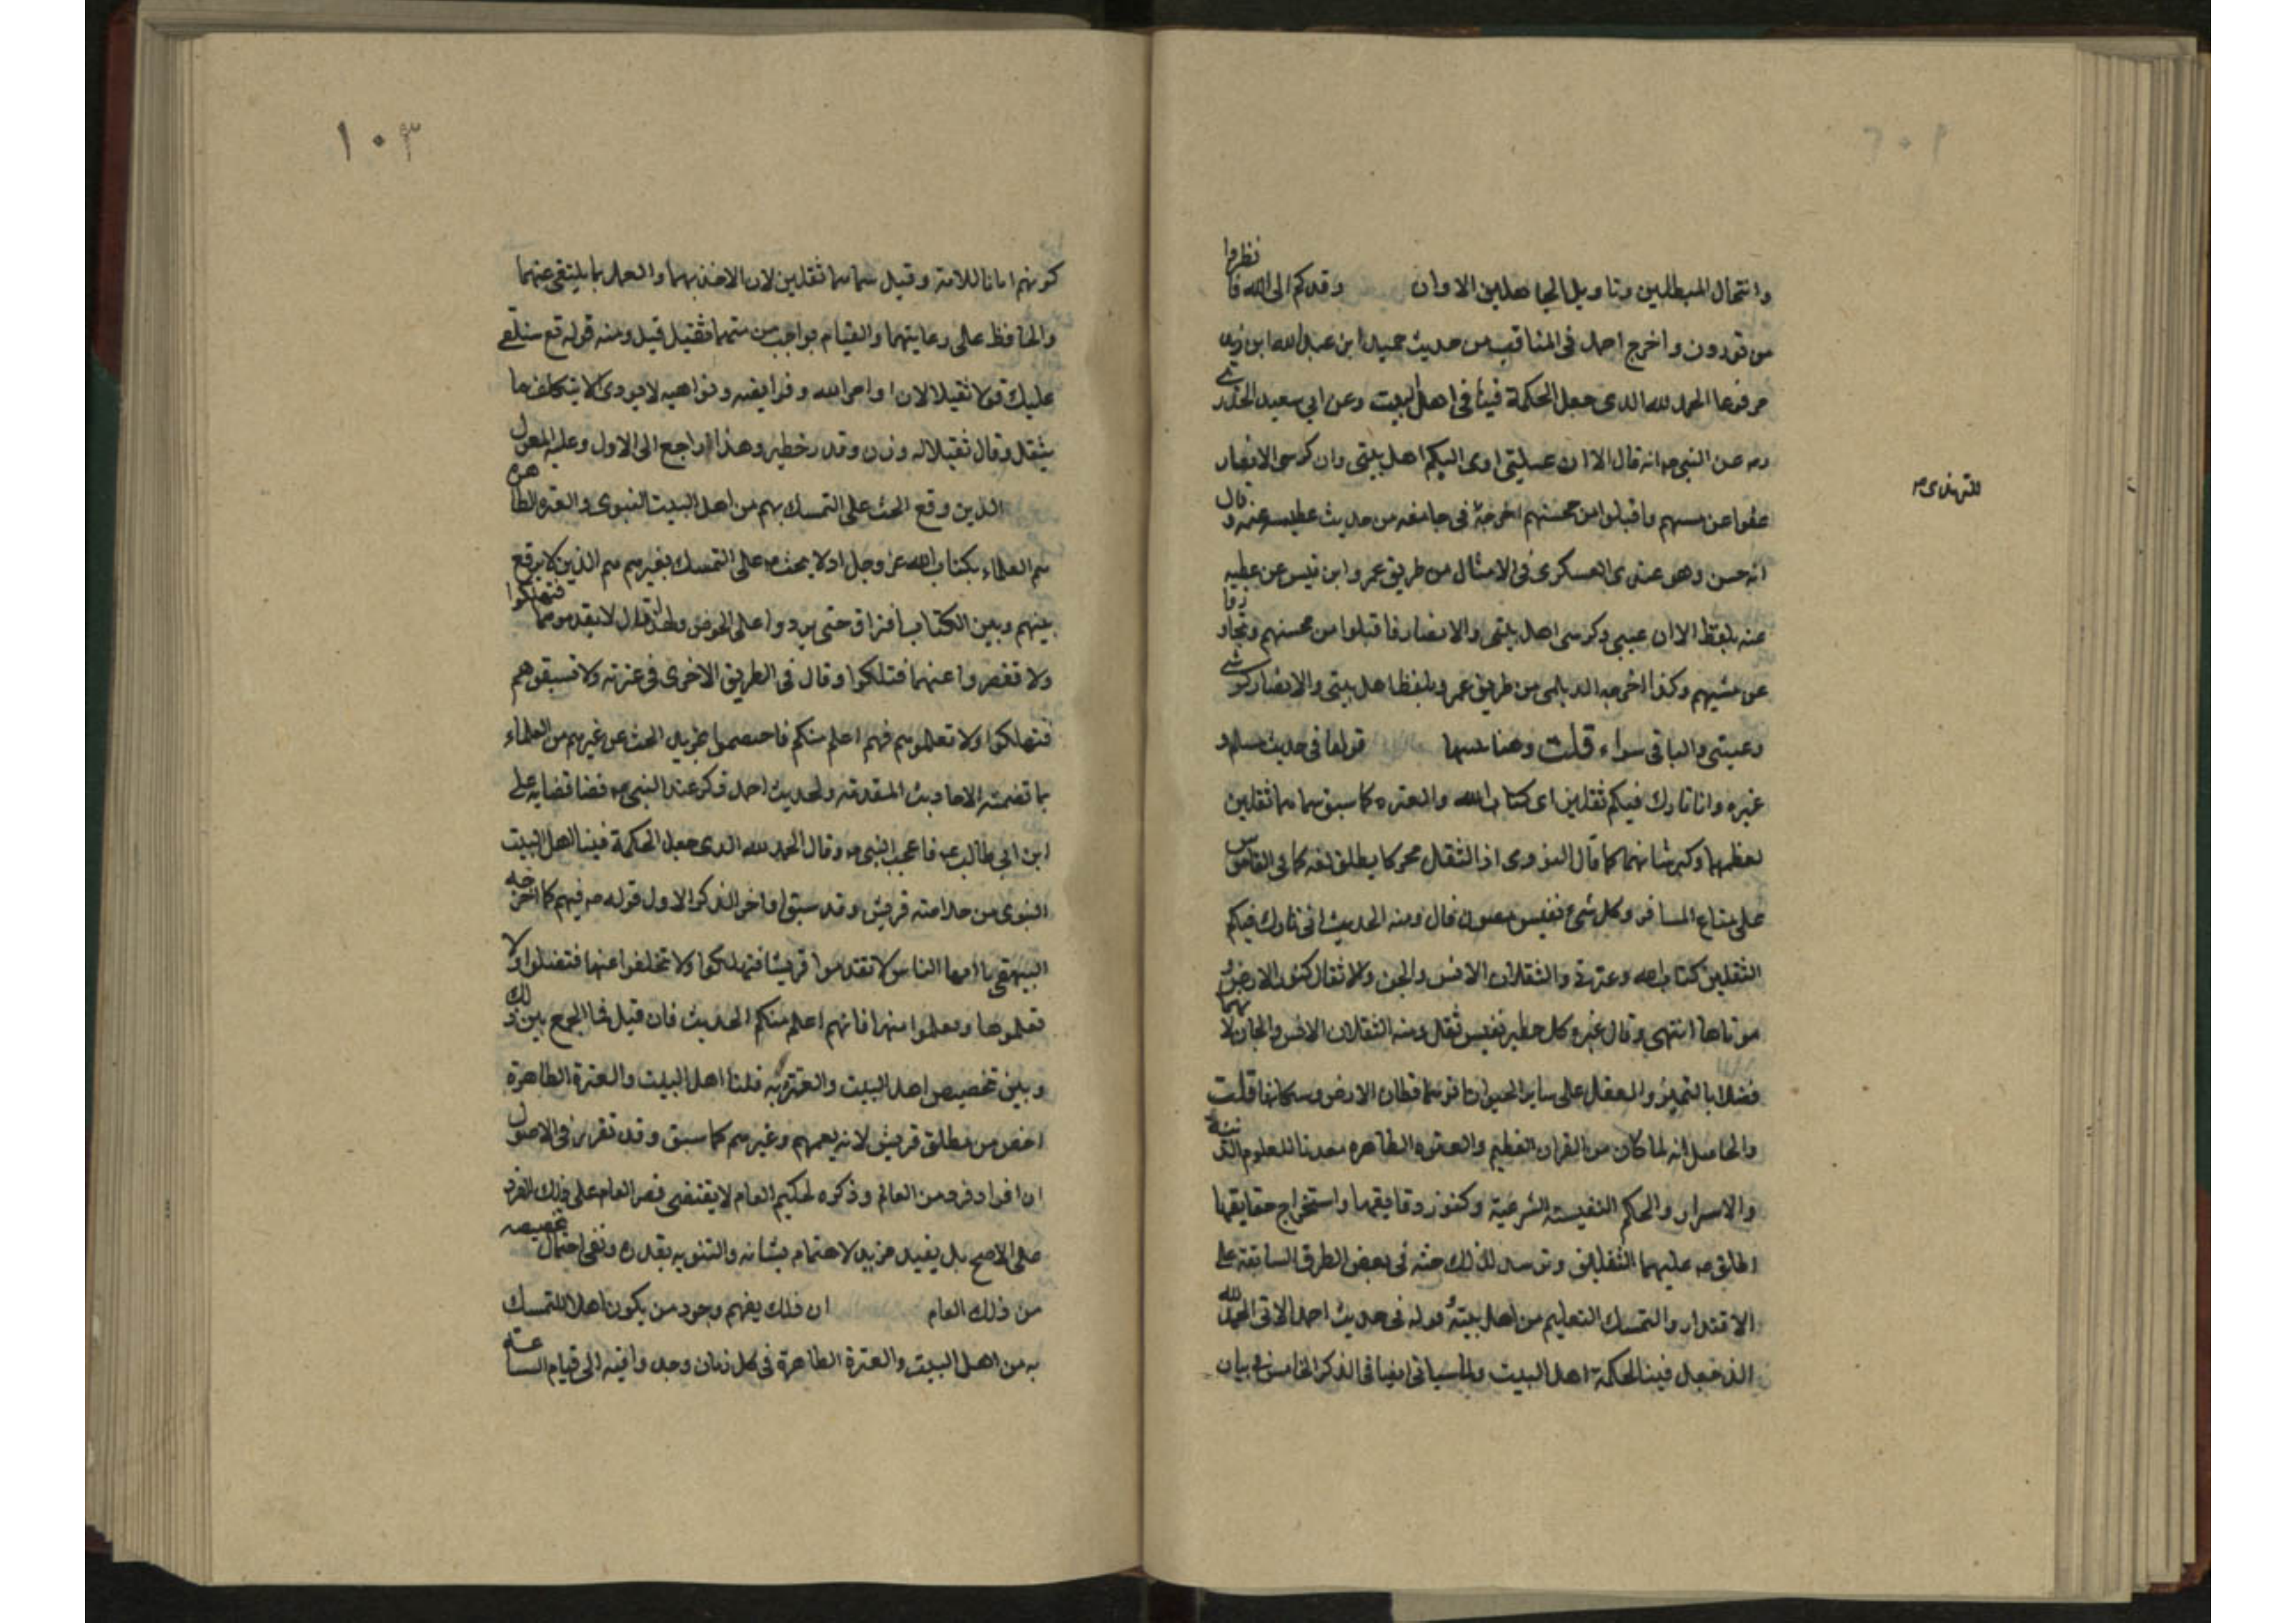 وانتحال المبطلين وتاويل الجاهلين الا وان وفدكم الى الله فانظروا
من توفدون واخرج احمد فى المناقب من حديث حميد ابن عبد الله ابن زيد
مرفوعا الحمد لله الدى جعل الحكمة فينا فى اهل البيت وعن ابى سعيد الخدرى
رض عن النبى ص انه قال الا ان عيبتى اوى اليكم اهل بيتى وان كرسى الانصار
عفوا عن مسيهم واقبلوا من محسنهم اخرجه فى جامعه من حديث عطيه عنه وقال
للترمذى ص
انه حسن وهو عند العسكرى فى الامثال من طريق عمرو ابن قيس عن عطيه
عنه بلفظ الا ان عيبى وكرسى اهل بيتى والانصار فاقبلوا من محسنهم وتجاوزوا
عن مسيهم وكذا اخرجه الديلمى من طريق عمرو بلفظ اهل بيتى والانصار كرشى
وعيبتى والباقى سواء قلت قولها فى حديث
غيره وانا تارك فيكم ثقلين اى كتاب الله والعتره كما سبق سماهما ثقلين
لعظمهما وكبر شانهما كما قال النووى اذ الثقل محركا يطلق لغه كما فى القاموس
على متاع المسافر وكل شىء نفيس مصون قال ومنه الحديث انى تارك فيكم
الثقلين كتاب الله وعترتى والثقلان الانس والجن والاثقال كنوز الارض و
موتاها انتهى وقال غيره كل خطير نفيس ثقل ومنه الثقلان الانس والجان لانهما
فضلا بالتميز والعقل على ساير الحيوان قطان الارض وسكانها قلت
والحاصل انه لما كان من القران العظيم والعتره الطاهره معدنا للعلوم الدينية
والاسرار والحكم النفيسته الشرعية وكنوز دقايقها واستخراج حقايقها
اطلق ص عليهما الثقلين لذلك حثه فى بعض الطرق السابقة على
الاقتدار والتمسك التعليم من اهل بيته وقوله فى حديث احمد الاتى الحمد لله
الذ جعل فينا الحكمة اهل البيت ولما سياتى ايضا فى الذكر الخامس فى بيان
١٠٣
كونهم امانا للامة وقيل سماهما ثقلين لان الاخذ بهما والعمل بما يلتقى عنهما
والحافظ على رعايتهما والقيام بواجب ثقيل قيل ومنه قوله تع سنلقى
عليك قولا ثقيلا لان اوامر الله وفرايضه ونواهيه لا يودى الا بتكلف ما
يثقل وقال ثقيلا له وزن وقدر خطير وهذا راجع الى الاول وعليه المعول
الذين وقع الحث على التمسك بهم من اهل البيت النبوى والعتره الطاهره
هم العلماء بكتاب الله عز وجل اذ لا يحث ص على التمسك بغيرهم هم الذين لا يرقع
بينهم وبين الكتاب افتراق حتى يردوا على الحوض ولهذا قال لا تقدموهما فتهلكوا
ولا تقصروا عنهما فتهلكوا وقال فى الطريق الاخرى فى عترته ولا تسبقوهم
فتهلكوا ولا تعلموهم فهم اعلم منكم فاختصموا بمزيد الحث عن غيرهم من العلماء
بما تضمنته الاحاديث المتقدمة ولحديث احمد ذكر عند النبى ص قضا قضايه على
ابن ابى طالب ع فاعجب النبى ص وقال الحمد لله الدى جعل الحكمة فينا اهل البيت
النبوى من حث امته قريش وقد سبق اواخر الذكر الاول قوله ص فيهم كما اخرجه
البيهقى يا ايها الناس لا تقدموا قريشا فتهلكوا ولا تخلفوا عنها فتضلوا ولا
تعلموها وتعلموا منها فانهم اعلم منكم الحديث فان قيل فما الجمع بين ذلك
وبين تخصيص اهل البيت والعترة به قلنا اهل البيت والعترة الطاهرة
اخص من مطلق قريش لانه يعمهم وغيرهم كما سبق وقد تقرر فى الاصول
ان افراد فرد من العام وذكره لحكم العام لا يقتضى قصر العام على ذلك الفرد
على الاصح بل يفيد مزيد الاهتمام بشانه والتنويه بقدره ونفى احتمال تخصيصه
من ذلك العام ان ذلك يفهم وجود من يكون اهلا للتمسك
به من اهل البيت والعترة الطاهرة فى كل زمان وجدوا فيه الى قيام الساعته